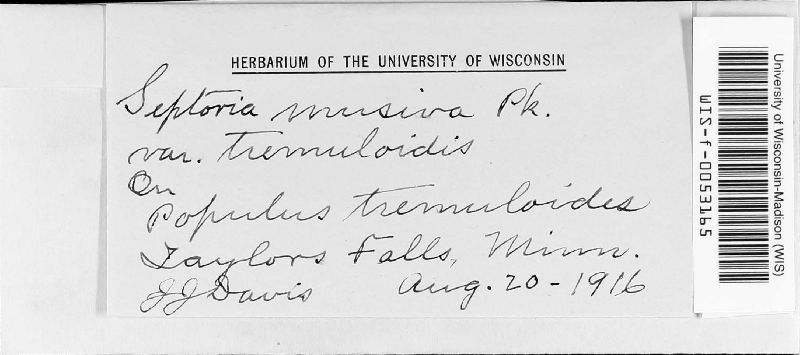 HERBARIUM OF THE UNIVERSITY OF WISCONSIN
Septoria musiva Pk.
var. tremuloidis
On
Populus tremuloides
Taylors Falls, Minn.
JJ Davis Aug. 20-1916
University of Wisconsin-Madison (WIS)
WIS-f-0053165